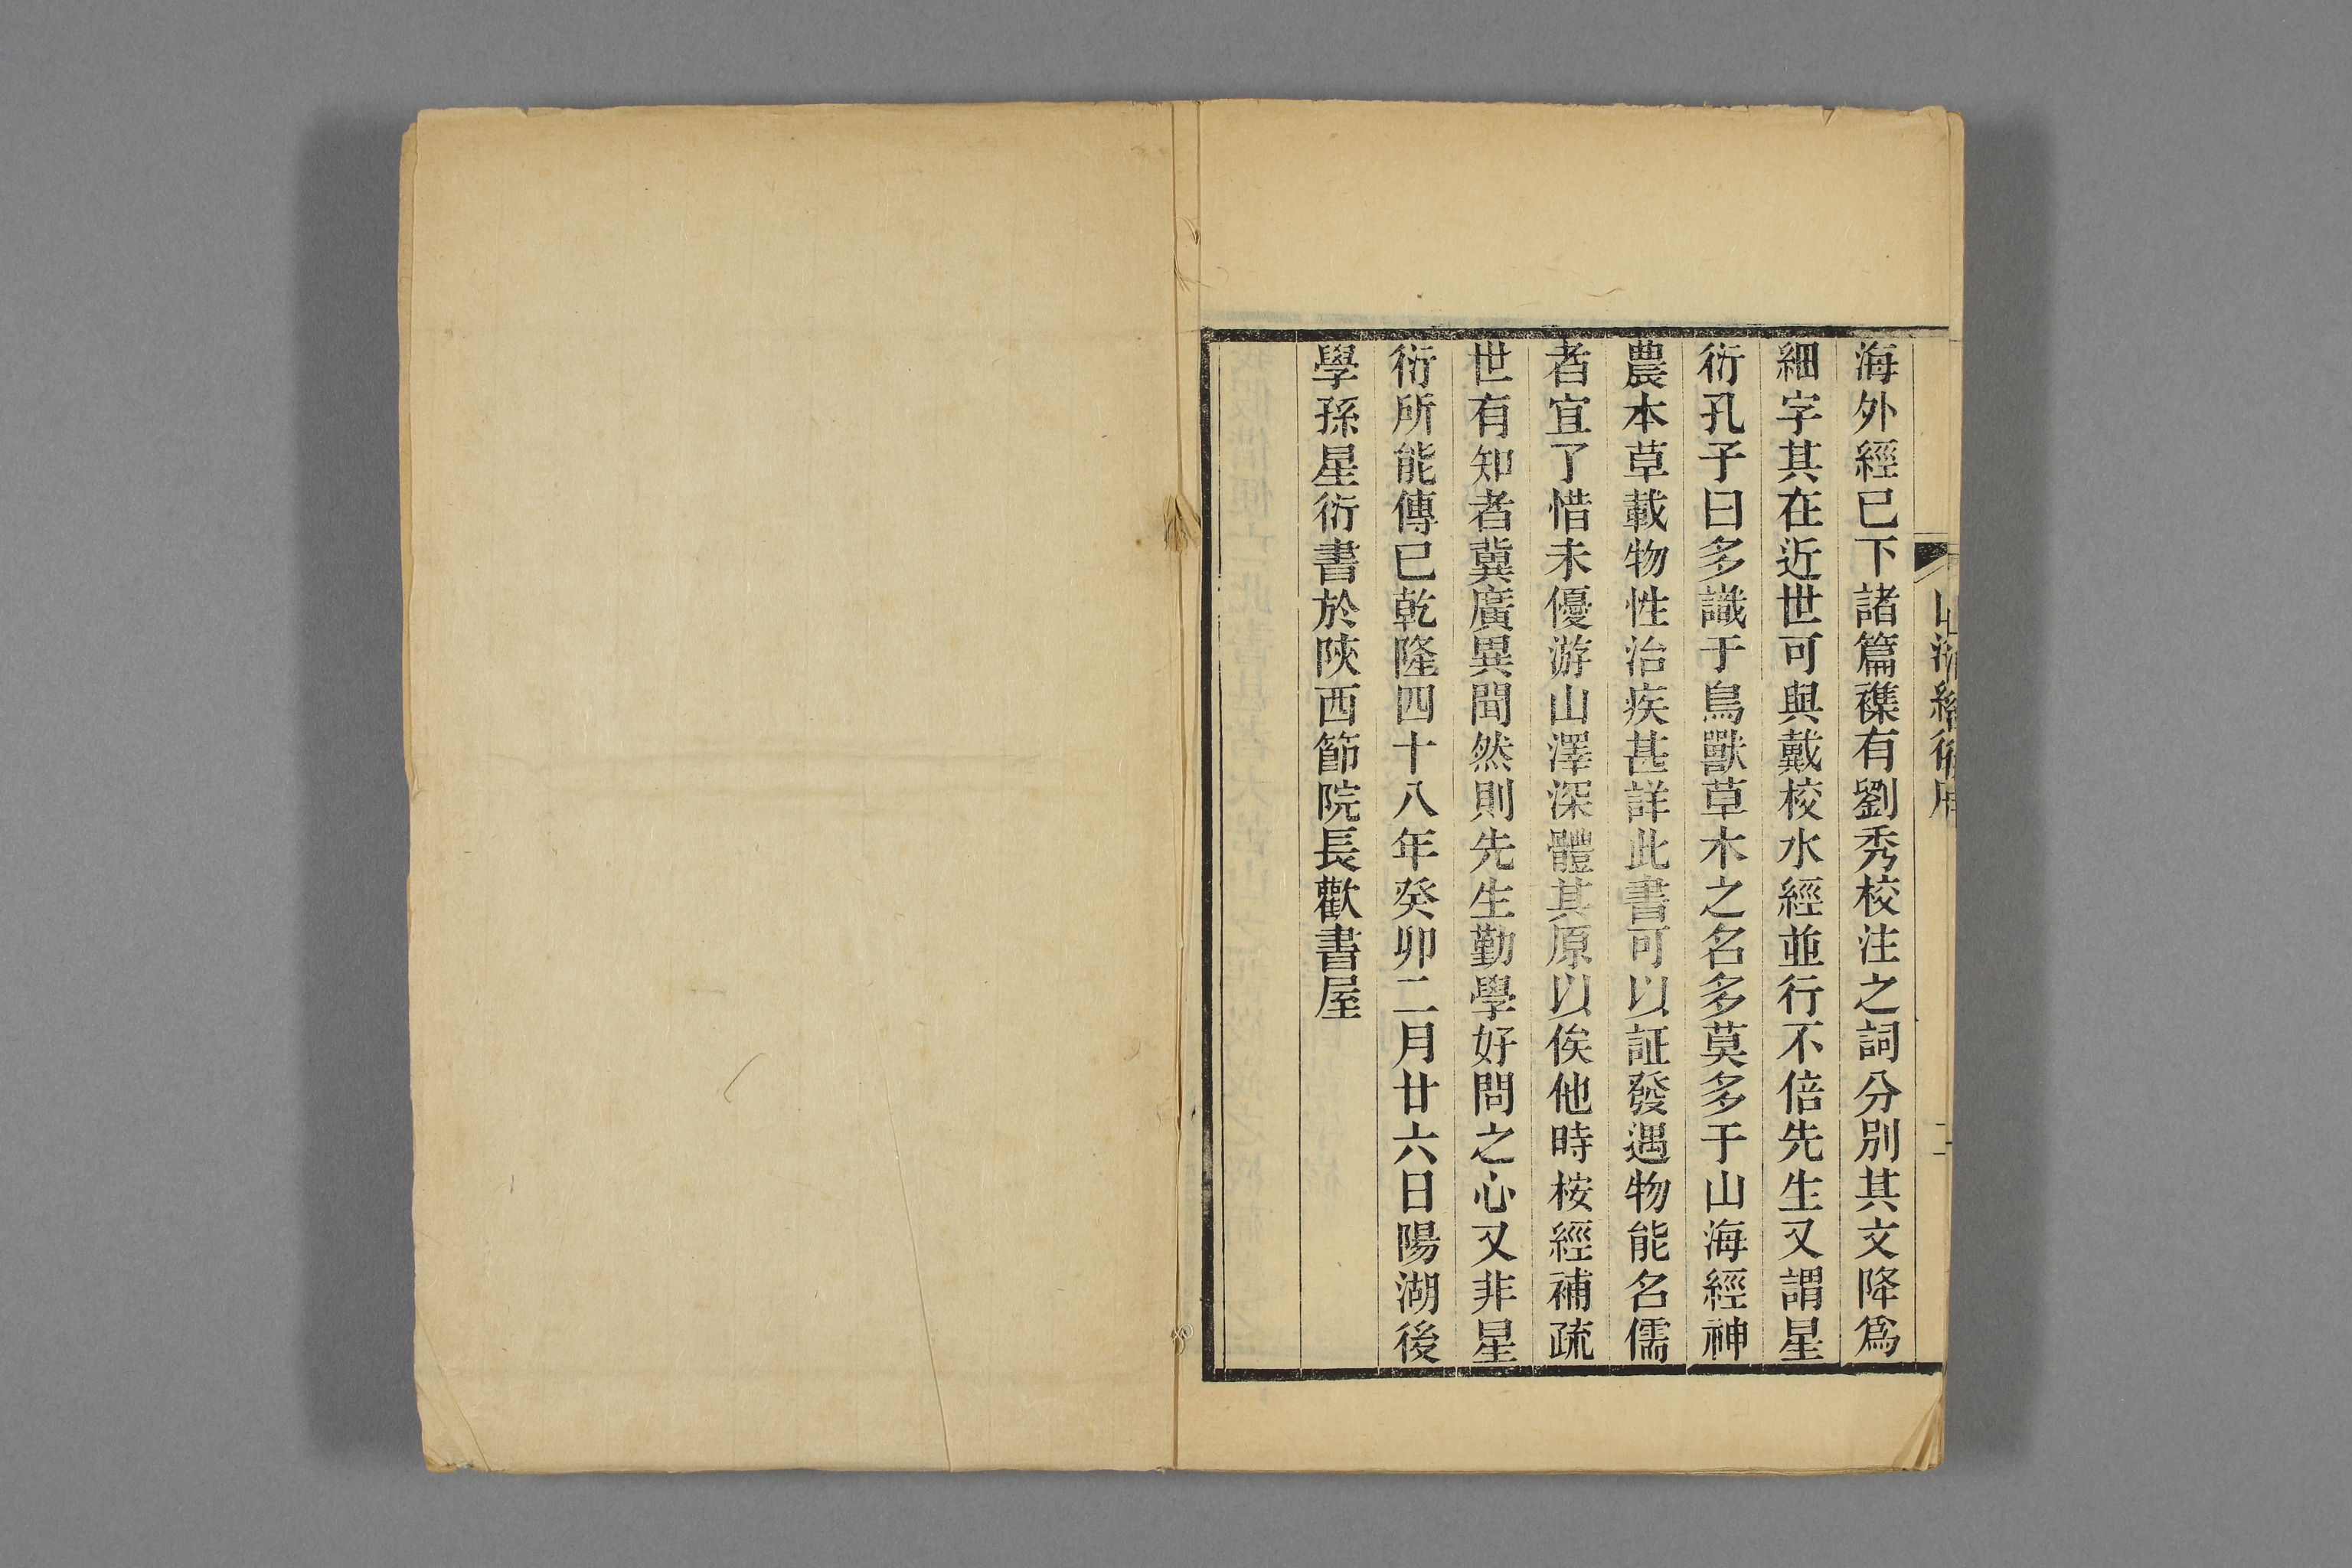 海外經巳下諸篇襍有劉秀校注之詞分別其文降爲
細字其在近世可與戴校水經並行不倍先生又謂星
衍孔子曰多識于鳥獸草木之名多莫多于山海經神
農本草載物性治疾甚詳此書可以証發遇物能名儒
者宜了惜未優游山澤深體其原以俟他時桉經補疏
世有知者冀廣異聞然則先生勤學好問之心又非星
衍所能傳巳乾隆四十八年癸卯二月廿六日陽湖後
學孫星衍書於陝西節院長歡書屋